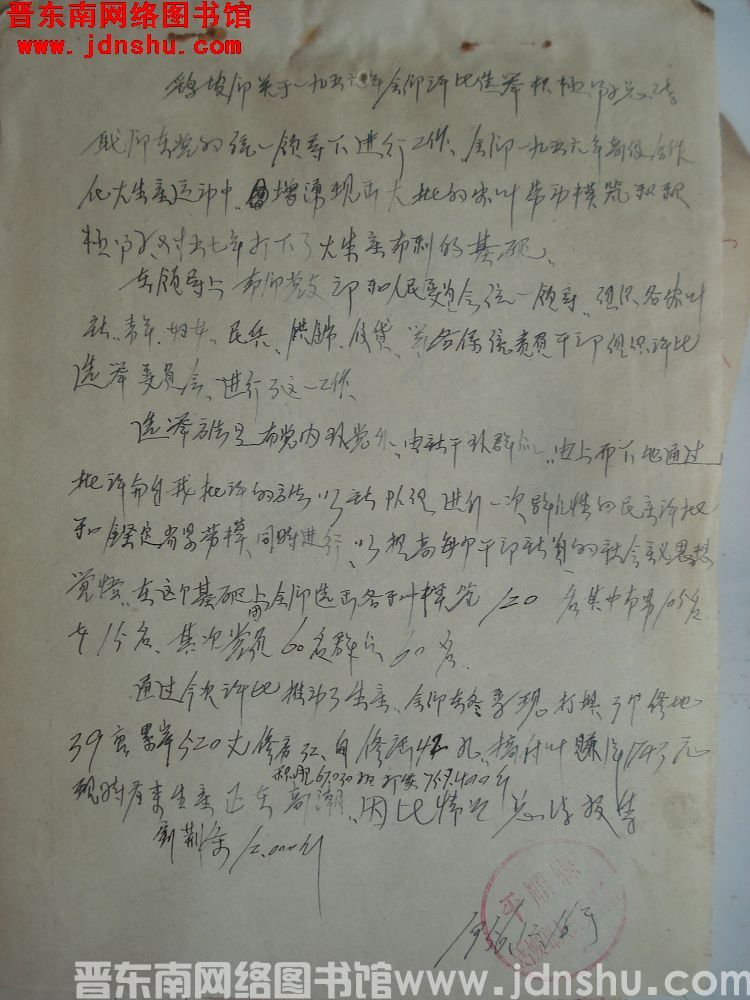 晋东南网络图书馆
www.jdnshu.com
关于一九五六年全乡评比选举积极分子总结
我乡在党的统一领导下进行工作、全乡一九五六年高级合作
化大生产运动中、增湧现出大批的农业劳动模范和积
极分子、对五七年打下了大生产有利的基础、
在领导上有乡党支部和人民委员会统一领导、组织各农业
社、青年、妇女、民兵、供销、信贷、等各系统负责干部组织评比
选举委员会、进行了这一工作、
选举方法是有党内到党外、由社干到群众、由上而下地通过
批评与自我批评的方法以社队组进行一次群众性的民主评比
和鉴定劳模、同时进行、以提高每个干部社员的社会主义思想
觉悟、在这个基础上全乡选出各行业模范120名其中有男105名
女15名、其次党员60名群众60名、
通过今次评比推动了生产、全乡在冬季现打井3个修地
39亩垒岸520丈修房32、自修窑42孔、搞付业赚洋1743元
积肥61030担
现将冬季生产正在高潮、因此情况总结报告
割荆条12,000斤
平顺县
晋东南网络图书馆 www.jdnshu.com